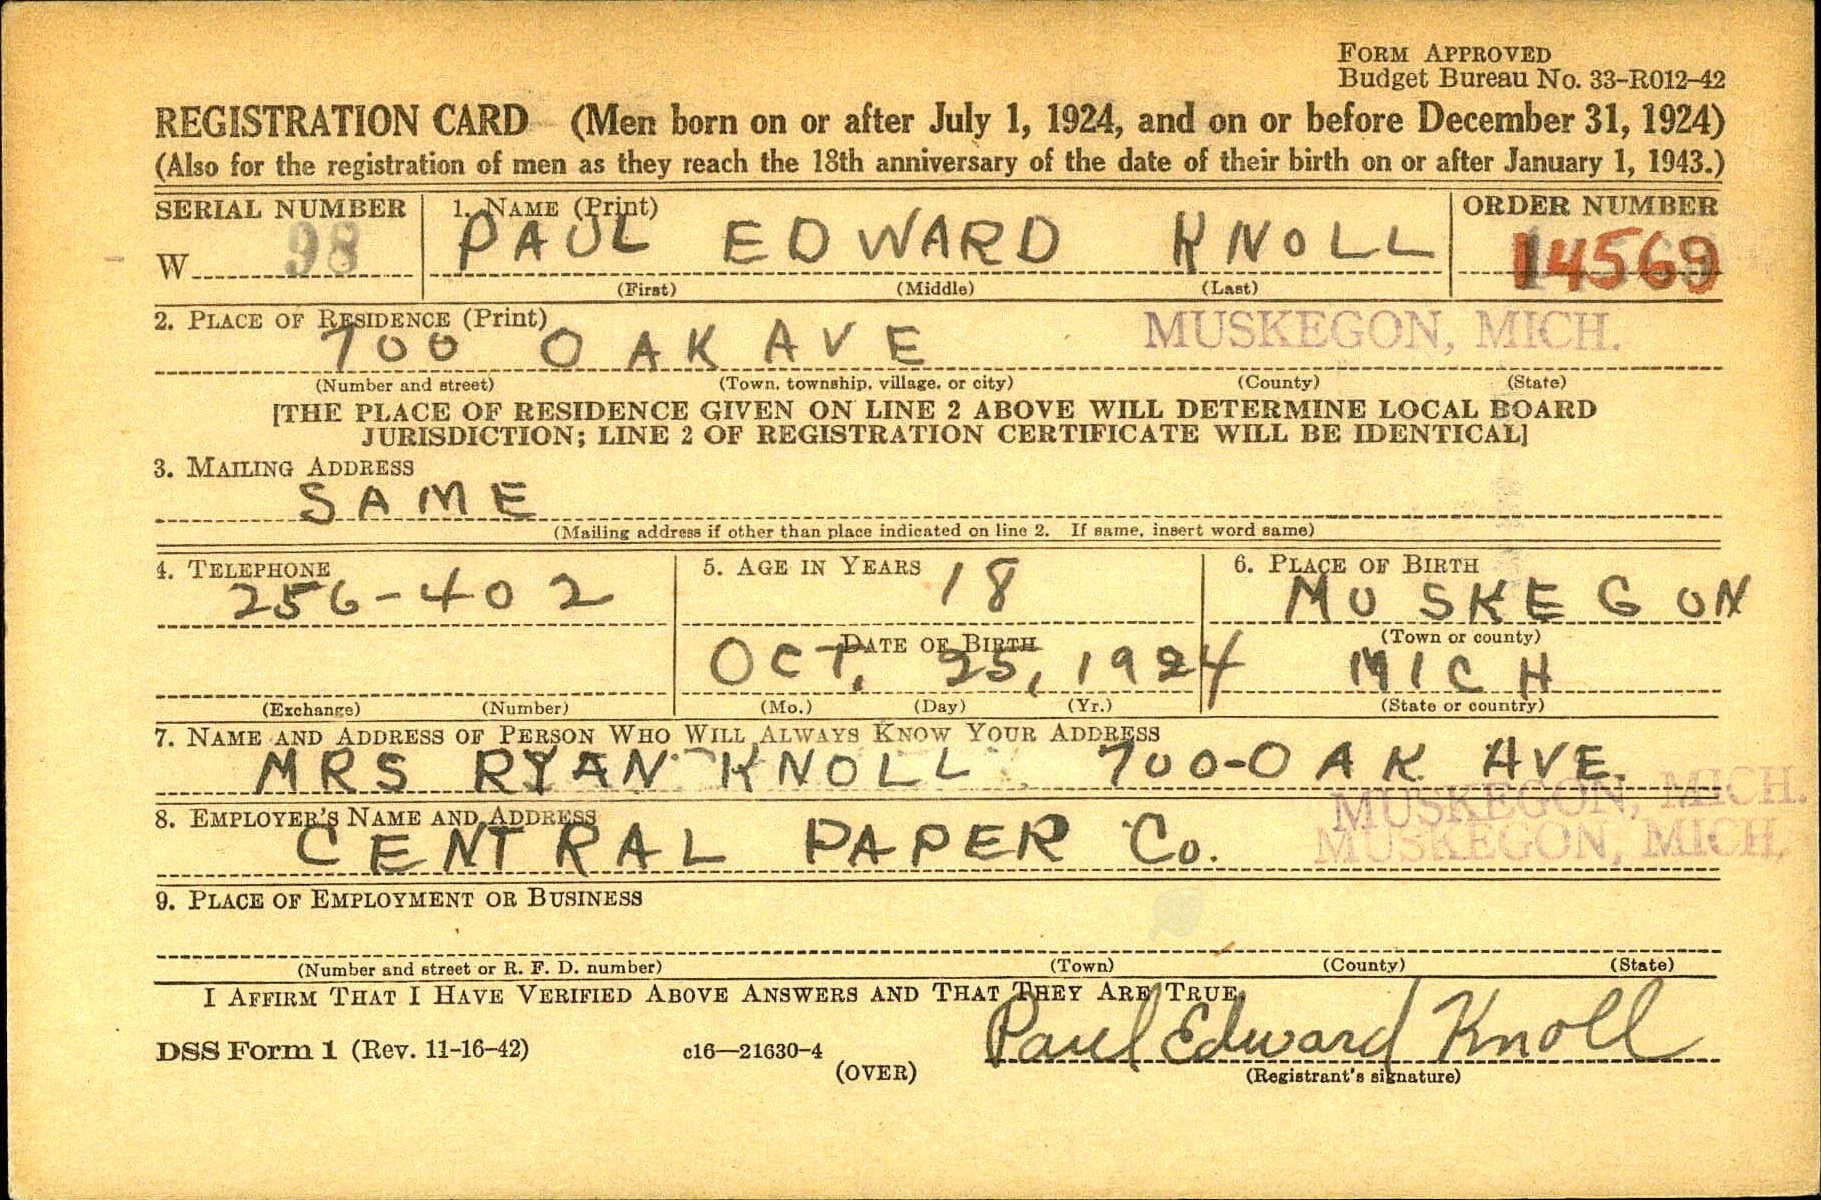 FORM APPROVED
Budget Bureau No. 33-R012-42
REGISTRATION CARD (Men born on or after July 1, 1924, and on or before December 31, 1924)
(Also for the registration of men as they reach the 18th anniversary of the date of their birth on or after January 1, 1943.)
SERIAL NUMBER 1. NAME (Print) ORDER NUMBER
W 98 PAUL EDWARD KNOLL 14569
(First) (Middle) (Last)
2. PLACE OF RESIDENCE (Print)
700 OAK AVE MUSKEGON, MICH.
(Number and street) (Town, township, village, or city) (County) (State)
[THE PLACE OF RESIDENCE GIVEN ON LINE 2 ABOVE WILL DETERMINE LOCAL BOARD
JURISDICTION; LINE 2 OF REGISTRATION CERTIFICATE WILL BE IDENTICAL]
3. MAILING ADDRESS
SAME
(Mailing address if other than place indicated on line 2. If same, insert word same)
4. TELEPHONE 5. AGE IN YEARS 6. PLACE OF BIRTH
256-402 18 MUSKEGON
DATE OF BIRTH (Town or county)
OCT, 25, 1924 MICH
(Exchange) (Number) (Mo.) (Day) (Yr.) (State or country)
7. NAME AND ADDRESS OF PERSON WHO WILL ALWAYS KNOW YOUR ADDRESS
MRS RYAN KNOLL 700-OAK AVE.
MUSKEGON, MICH.
8. EMPLOYER'S NAME AND ADDRESS
CENTRAL PAPER Co. MUSKEGON, MICH.
9. PLACE OF EMPLOYMENT OR BUSINESS
(Number and street or R. F. D. number) (Town) (County) (State)
I AFFIRM THAT I HAVE VERIFIED ABOVE ANSWERS AND THAT THEY ARE TRUE.
DSS Form 1 (Rev. 11-16-42) c16—21630-4 Paul Edward Knoll
(OVER) (Registrant's signature)